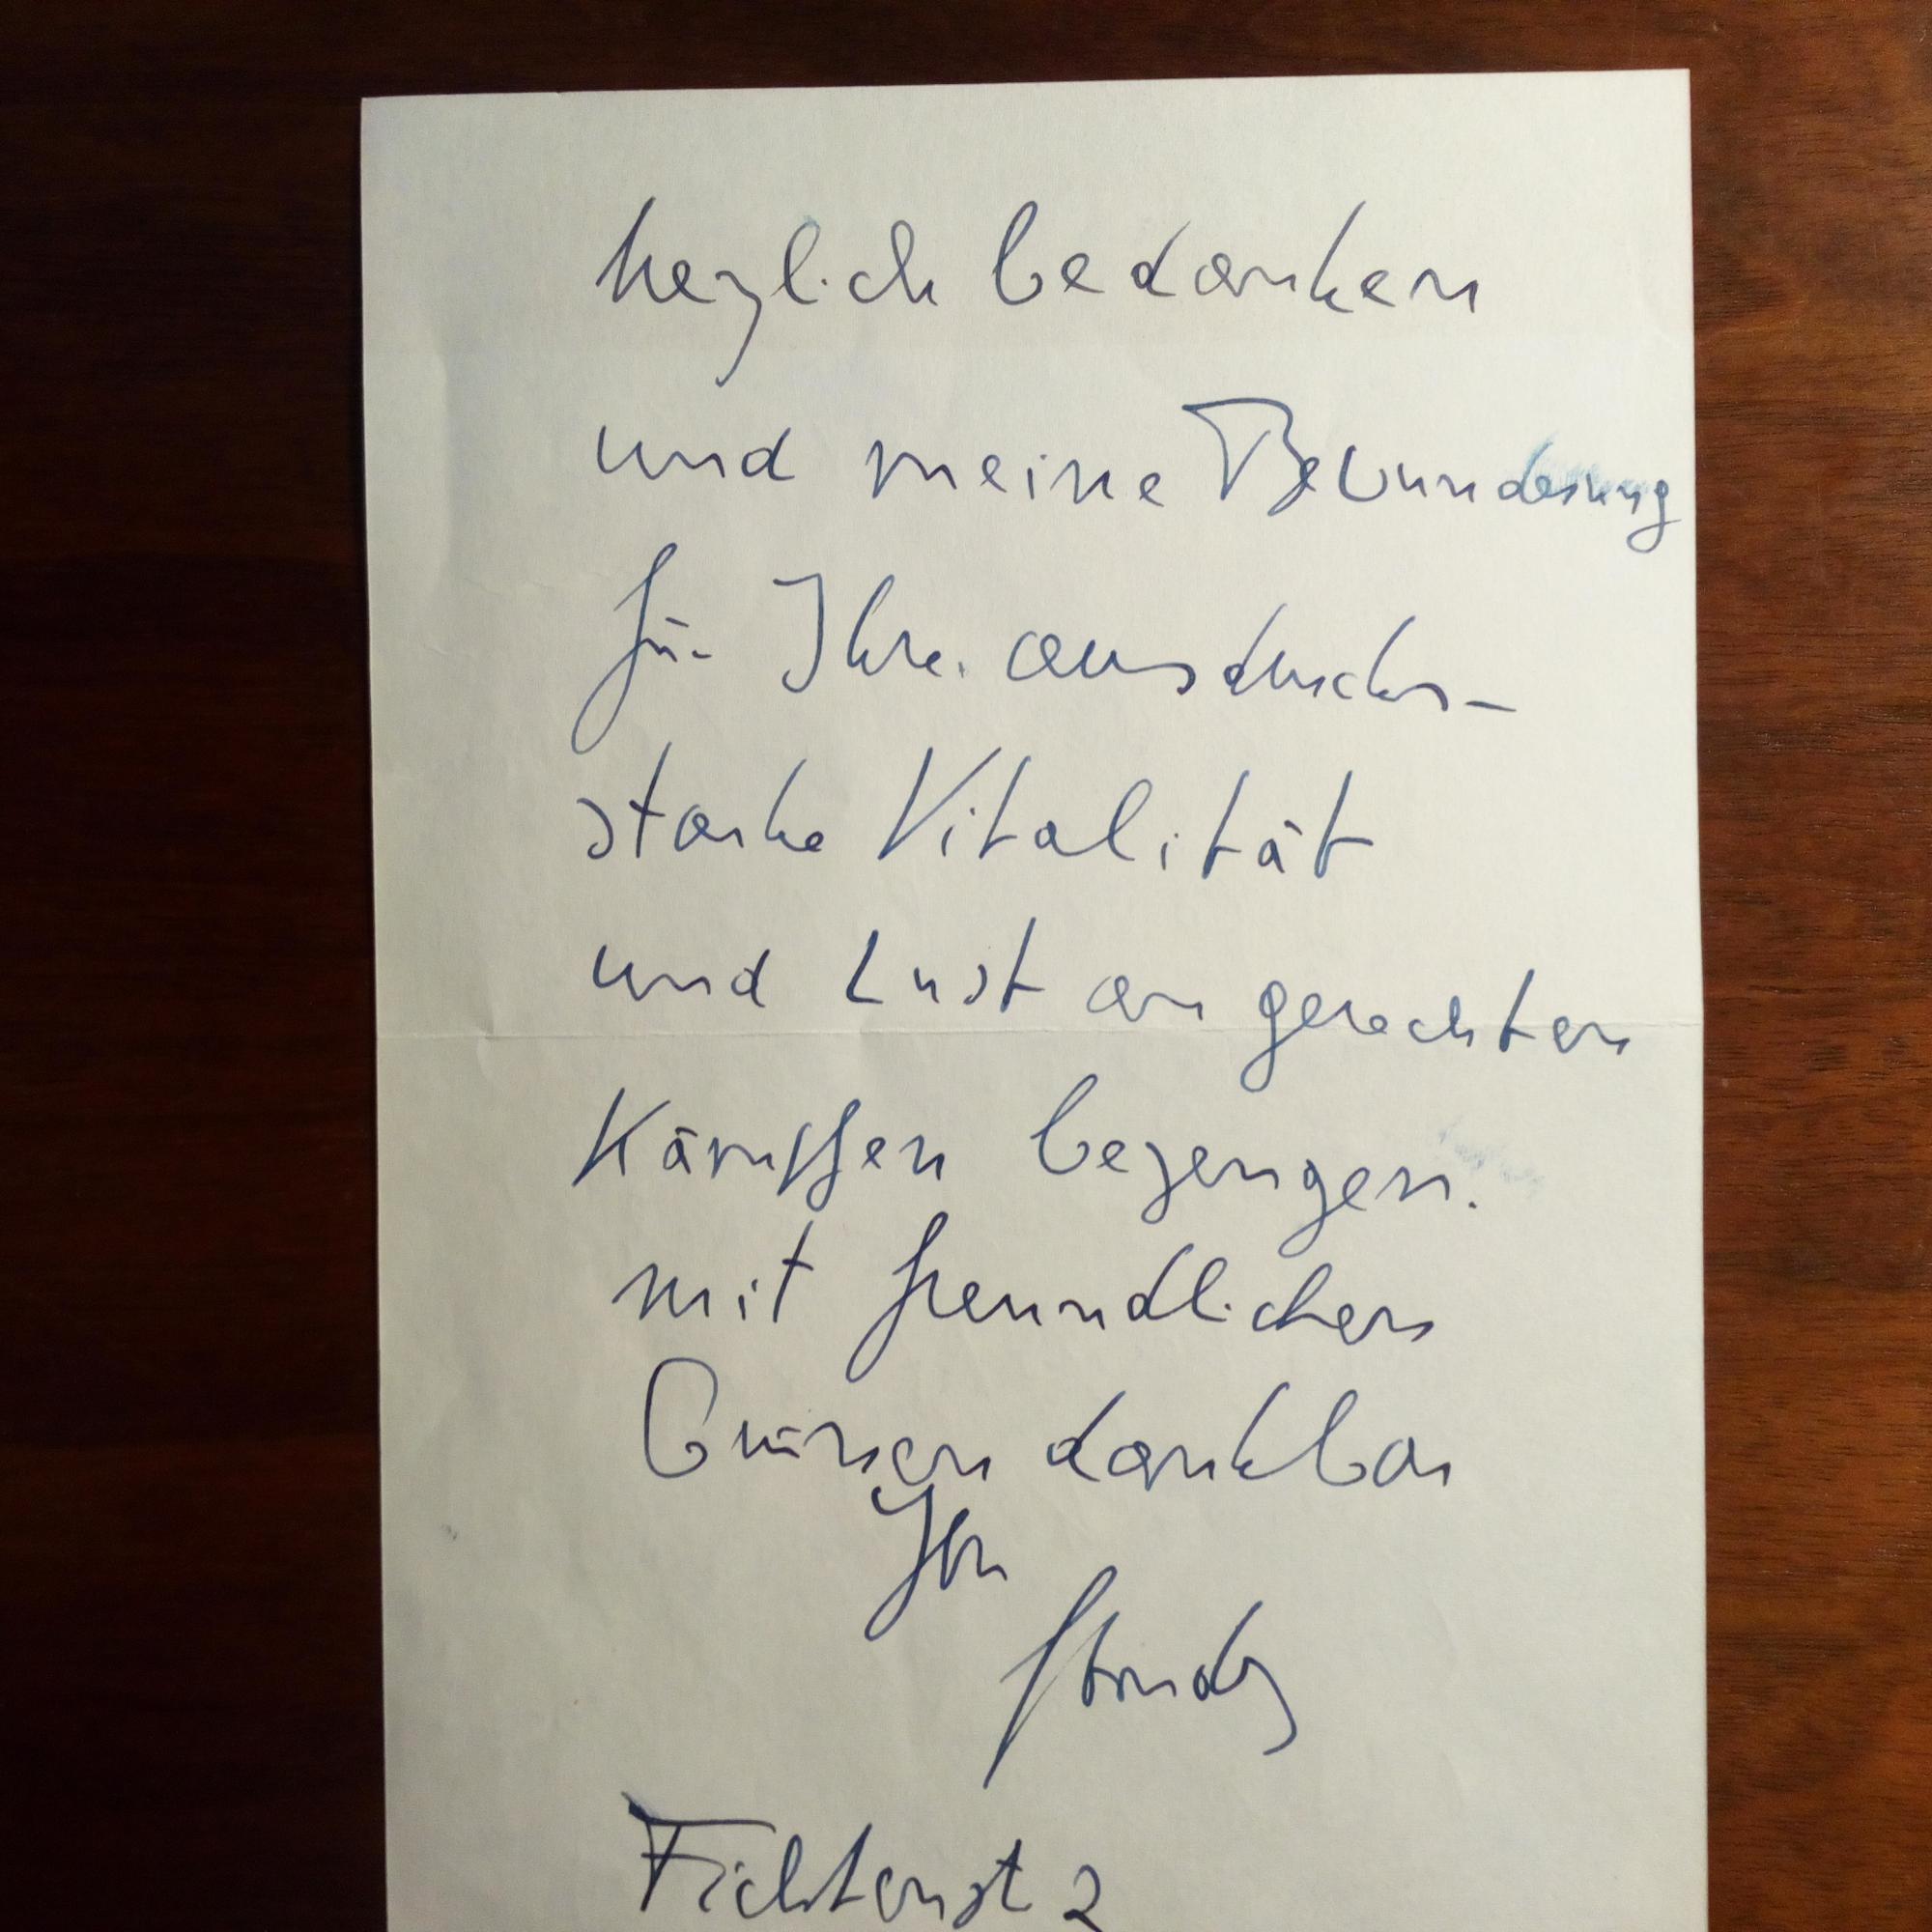 herzlich bedanken
und meine Bewunderung
für Ihre ausdrucks-
starke Vitalität
und Lust an gerechten
Kämpfen bezeugen.
mit freundlichen
Grüssen dankbar
Ihr
Fichtenst 2